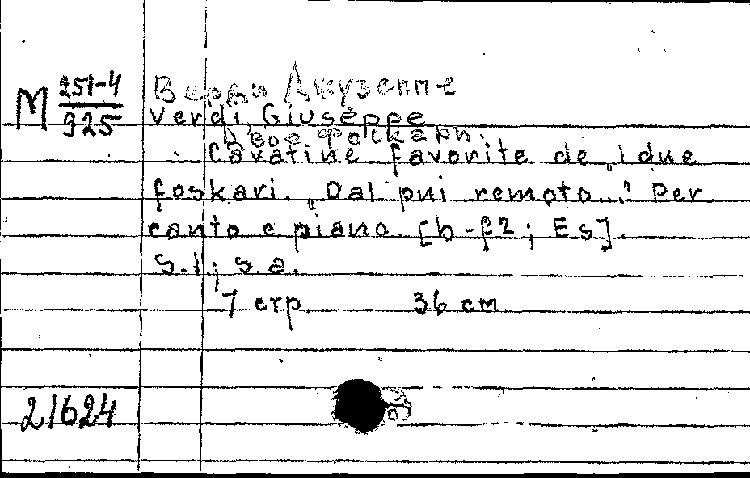 М 251-4
925
Верди Джузеппе
Verdi, Giuseppe
Двое Фоскари.
Cavatine favorite de „I due
foskari. „Dal piu remoto..." Per
canto e piano. [b-f2; Es].
S.l.; s.a.
7 стр. 36 см
21624